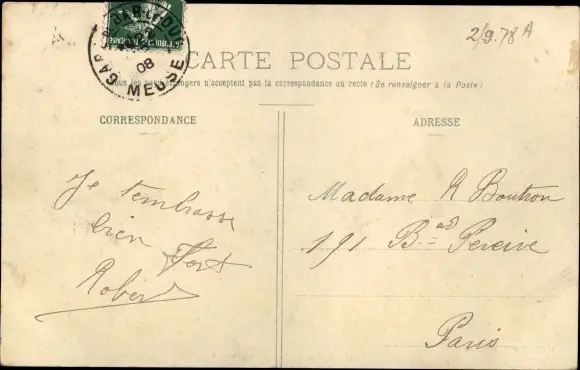 2/9.78 A
BAR-LE-DUC
GARE
08
MEUSE
CARTE POSTALE
Tous les pays étrangers n'acceptent pas la correspondance au recto (Se renseigner à la Poste)
CORRESPONDANCE
ADRESSE
Je t'embrasse
bien fort
Robert
Madame R Boutron
191 Bard Pereire
Paris